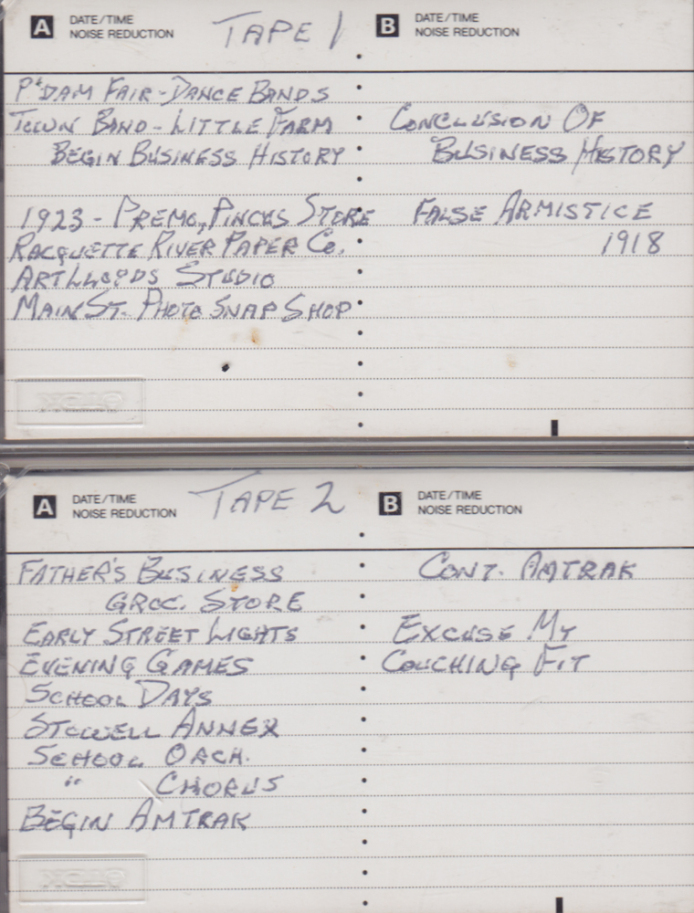 A DATE/TIME
NOISE REDUCTION
TAPE 1
B DATE/TIME
NOISE REDUCTION
P'DAM FAIR - DANCE BANDS
TOWN BAND - LITTLE FARM
BEGIN BUSINESS HISTORY
1923 - PREMO, PINCUS STORE
RACQUETTE RIVER PAPER CO.
ART LLOYDS STUDIO
MAIN ST. PHOTO SNAP SHOP
CONCLUSION OF
BUSINESS HISTORY
FALSE ARMISTICE
1918
A DATE/TIME
NOISE REDUCTION
TAPE 2
B DATE/TIME
NOISE REDUCTION
FATHER'S BUSINESS
GROC. STORE
EARLY STREET LIGHTS
EVENING GAMES
SCHOOL DAYS
STOWELL ANNEX
SCHOOL ORCH.
" CHORUS
BEGIN AMTRAK
CONT. AMTRAK
EXCUSE MY
COUGHING FIT